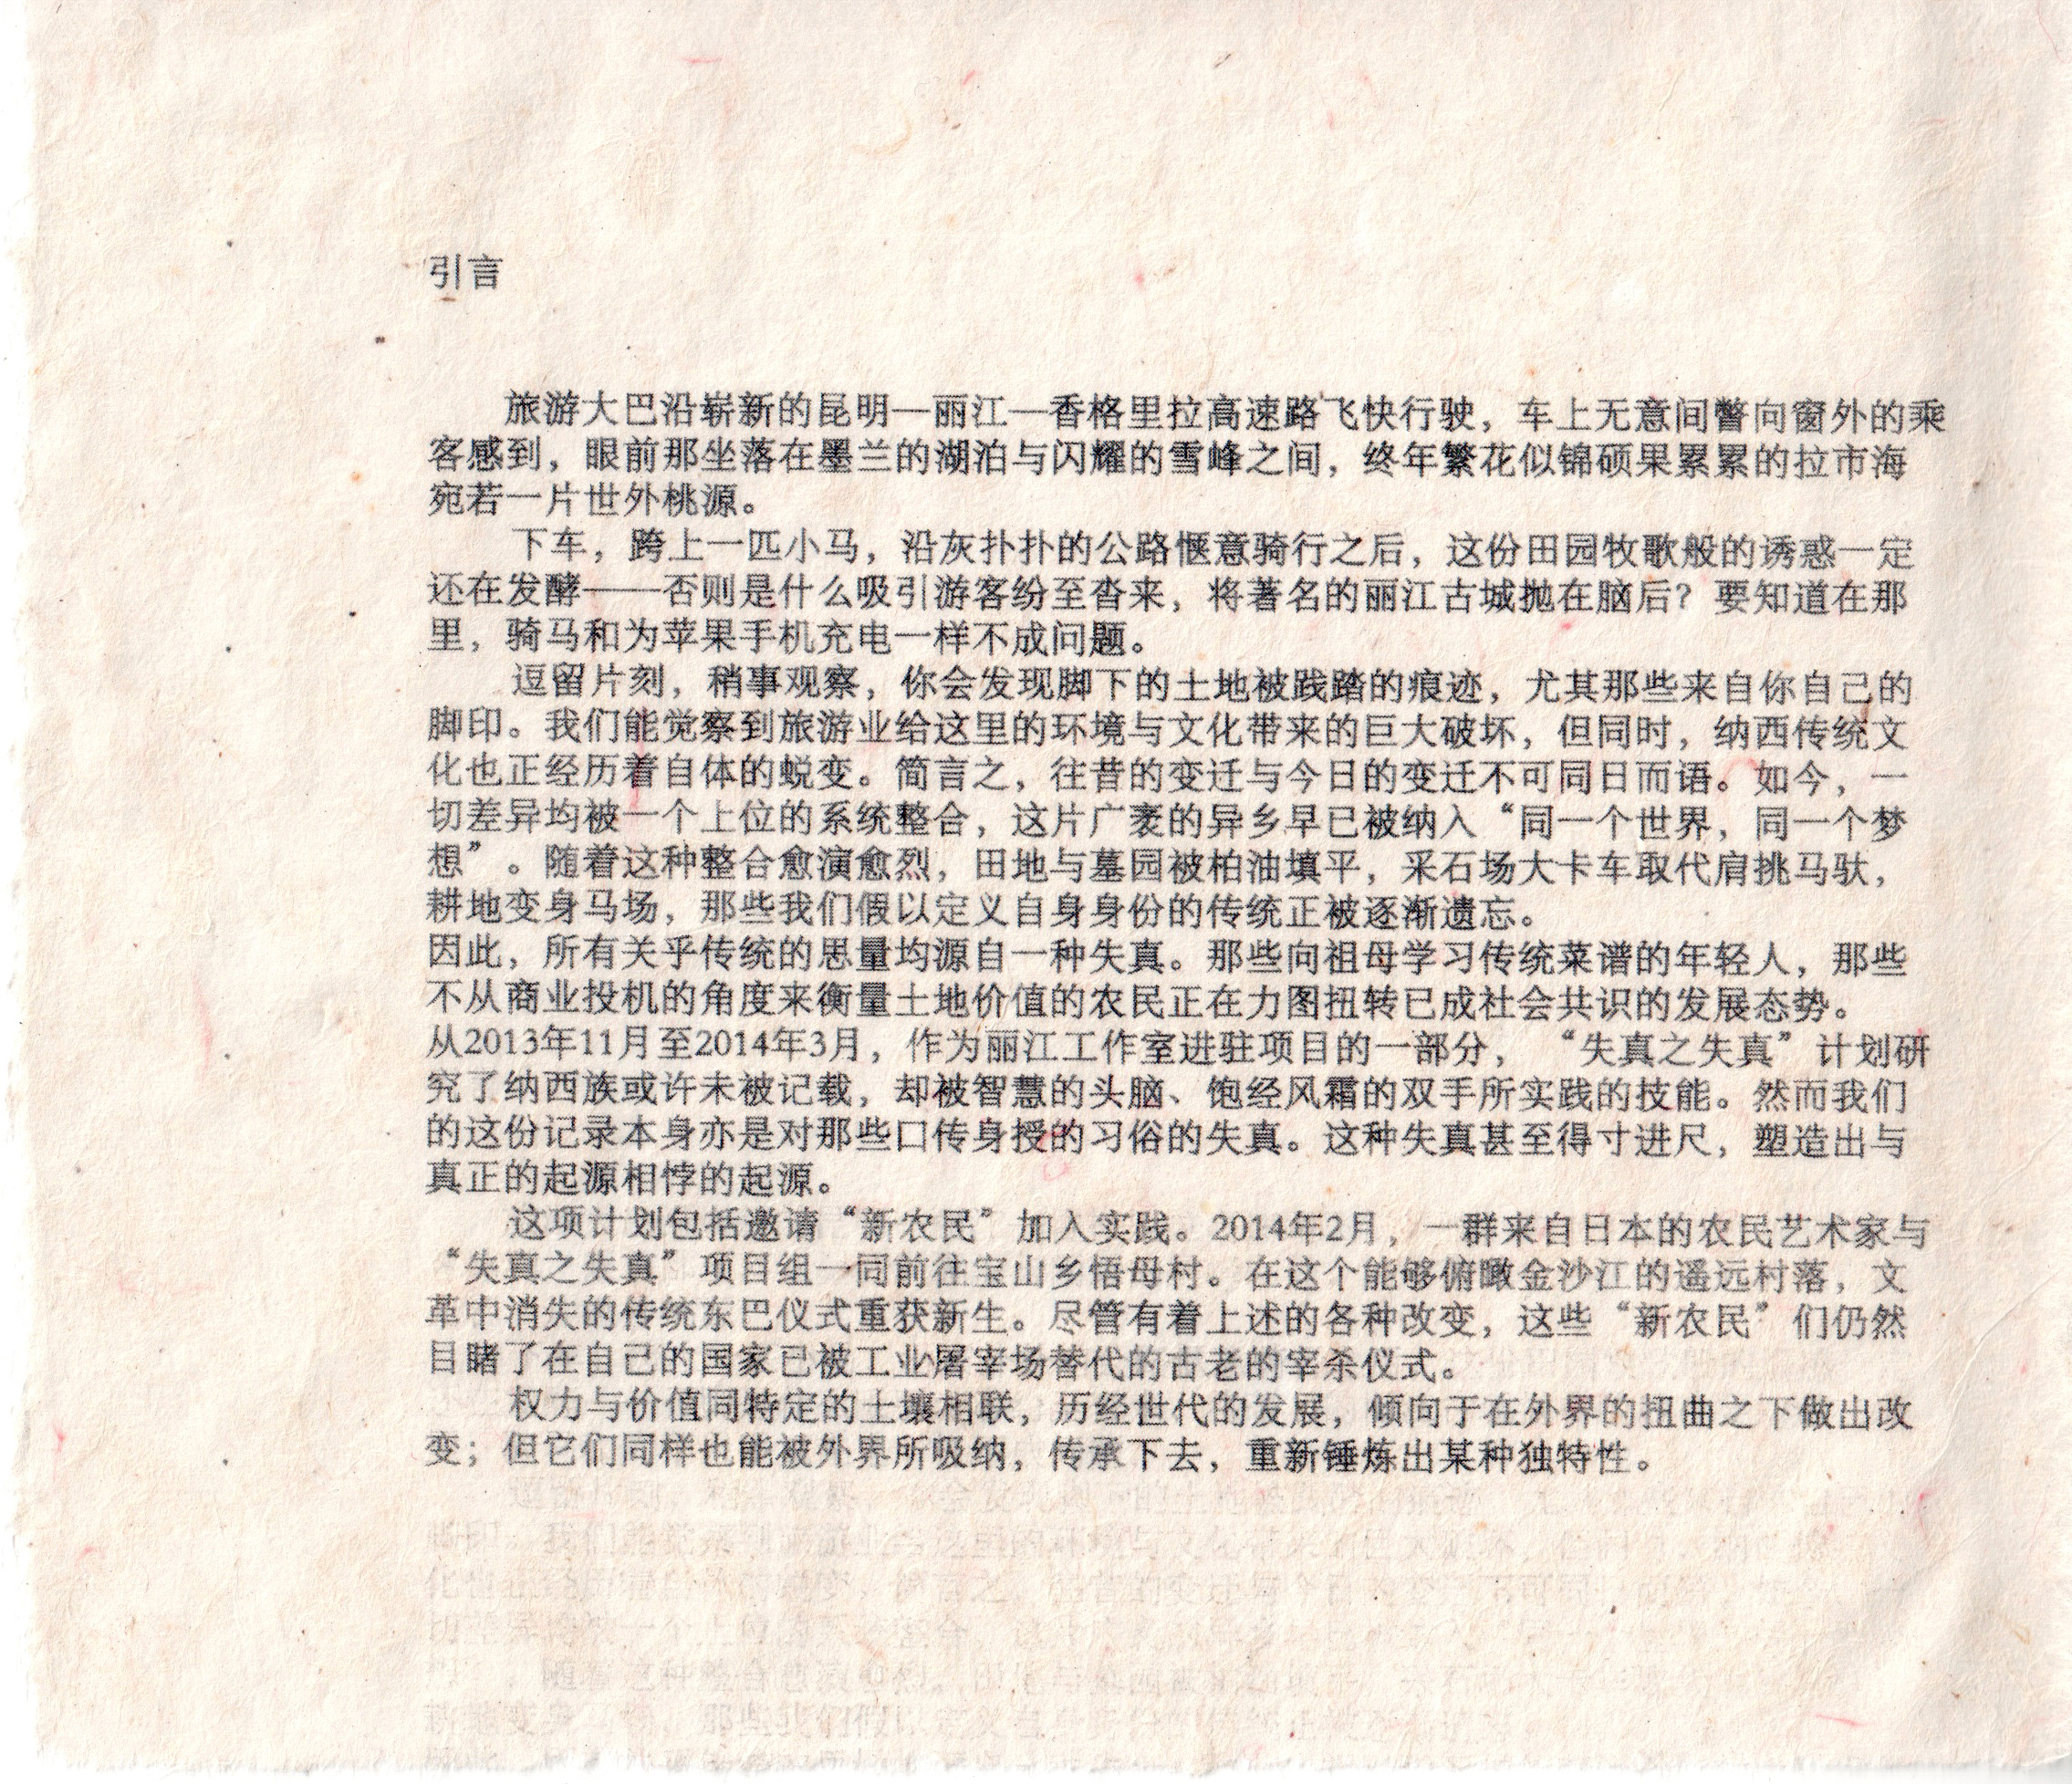 引言
旅游大巴沿崭新的昆明—丽江—香格里拉高速路飞快行驶，车上无意间瞥向窗外的乘
客感到，眼前那坐落在墨兰的湖泊与闪耀的雪峰之间，终年繁花似锦硕果累累的拉市海
宛若一片世外桃源。
下车，跨上一匹小马，沿灰扑扑的公路惬意骑行之后，这份田园牧歌般的诱惑一定
还在发酵——否则是什么吸引游客纷至沓来，将著名的丽江古城抛在脑后？要知道在那
里，骑马和为苹果手机充电一样不成问题。
逗留片刻，稍事观察，你会发现脚下的土地被践踏的痕迹，尤其那些来自你自己的
脚印。我们能觉察到旅游业给这里的环境与文化带来的巨大破坏，但同时，纳西传统文
化也正经历着自体的蜕变。简言之，往昔的变迁与今日的变迁不可同日而语。如今，一
切差异均被一个上位的系统整合，这片广袤的异乡早已被纳入“同一个世界，同一个梦
想”。随着这种整合愈演愈烈，田地与墓园被柏油填平，采石场大卡车取代肩挑马驮，
耕地变身马场，那些我们假以定义自身身份的传统正被逐渐遗忘。
因此，所有关乎传统的思量均源自一种失真。那些向祖母学习传统菜谱的年轻人，那些
不从商业投机的角度来衡量土地价值的农民正在力图扭转已成社会共识的发展态势。
从2013年11月至2014年3月，作为丽江工作室进驻项目的一部分，“失真之失真”计划研
究了纳西族或许未被记载，却被智慧的头脑、饱经风霜的双手所实践的技能。然而我们
的这份记录本身亦是对那些口传身授的习俗的失真。这种失真甚至得寸进尺，塑造出与
真正的起源相悖的起源。
这项计划包括邀请“新农民”加入实践。2014年2月，一群来自日本的农民艺术家与
“失真之失真”项目组一同前往宝山乡悟母村。在这个能够俯瞰金沙江的遥远村落，文
革中消失的传统东巴仪式重获新生。尽管有着上述的各种改变，这些“新农民”们仍然
目睹了在自己的国家已被工业屠宰场替代的古老的宰杀仪式。
权力与价值同特定的土壤相联，历经世代的发展，倾向于在外界的扭曲之下做出改
变；但它们同样也能被外界所吸纳，传承下去，重新锤炼出某种独特性。